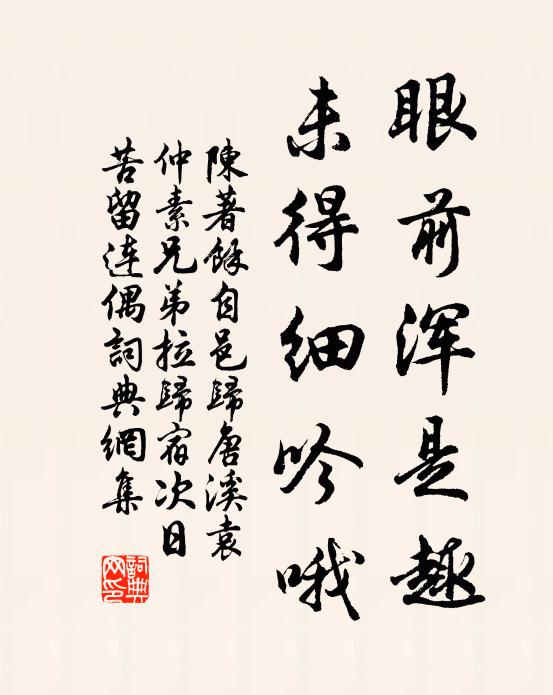 眼前渾是趣
未得細吟哦
陳著餘自邑歸唐溪袁
仲素兄弟拉歸宿次日
苦留連偶詞典網集
詞典
网印